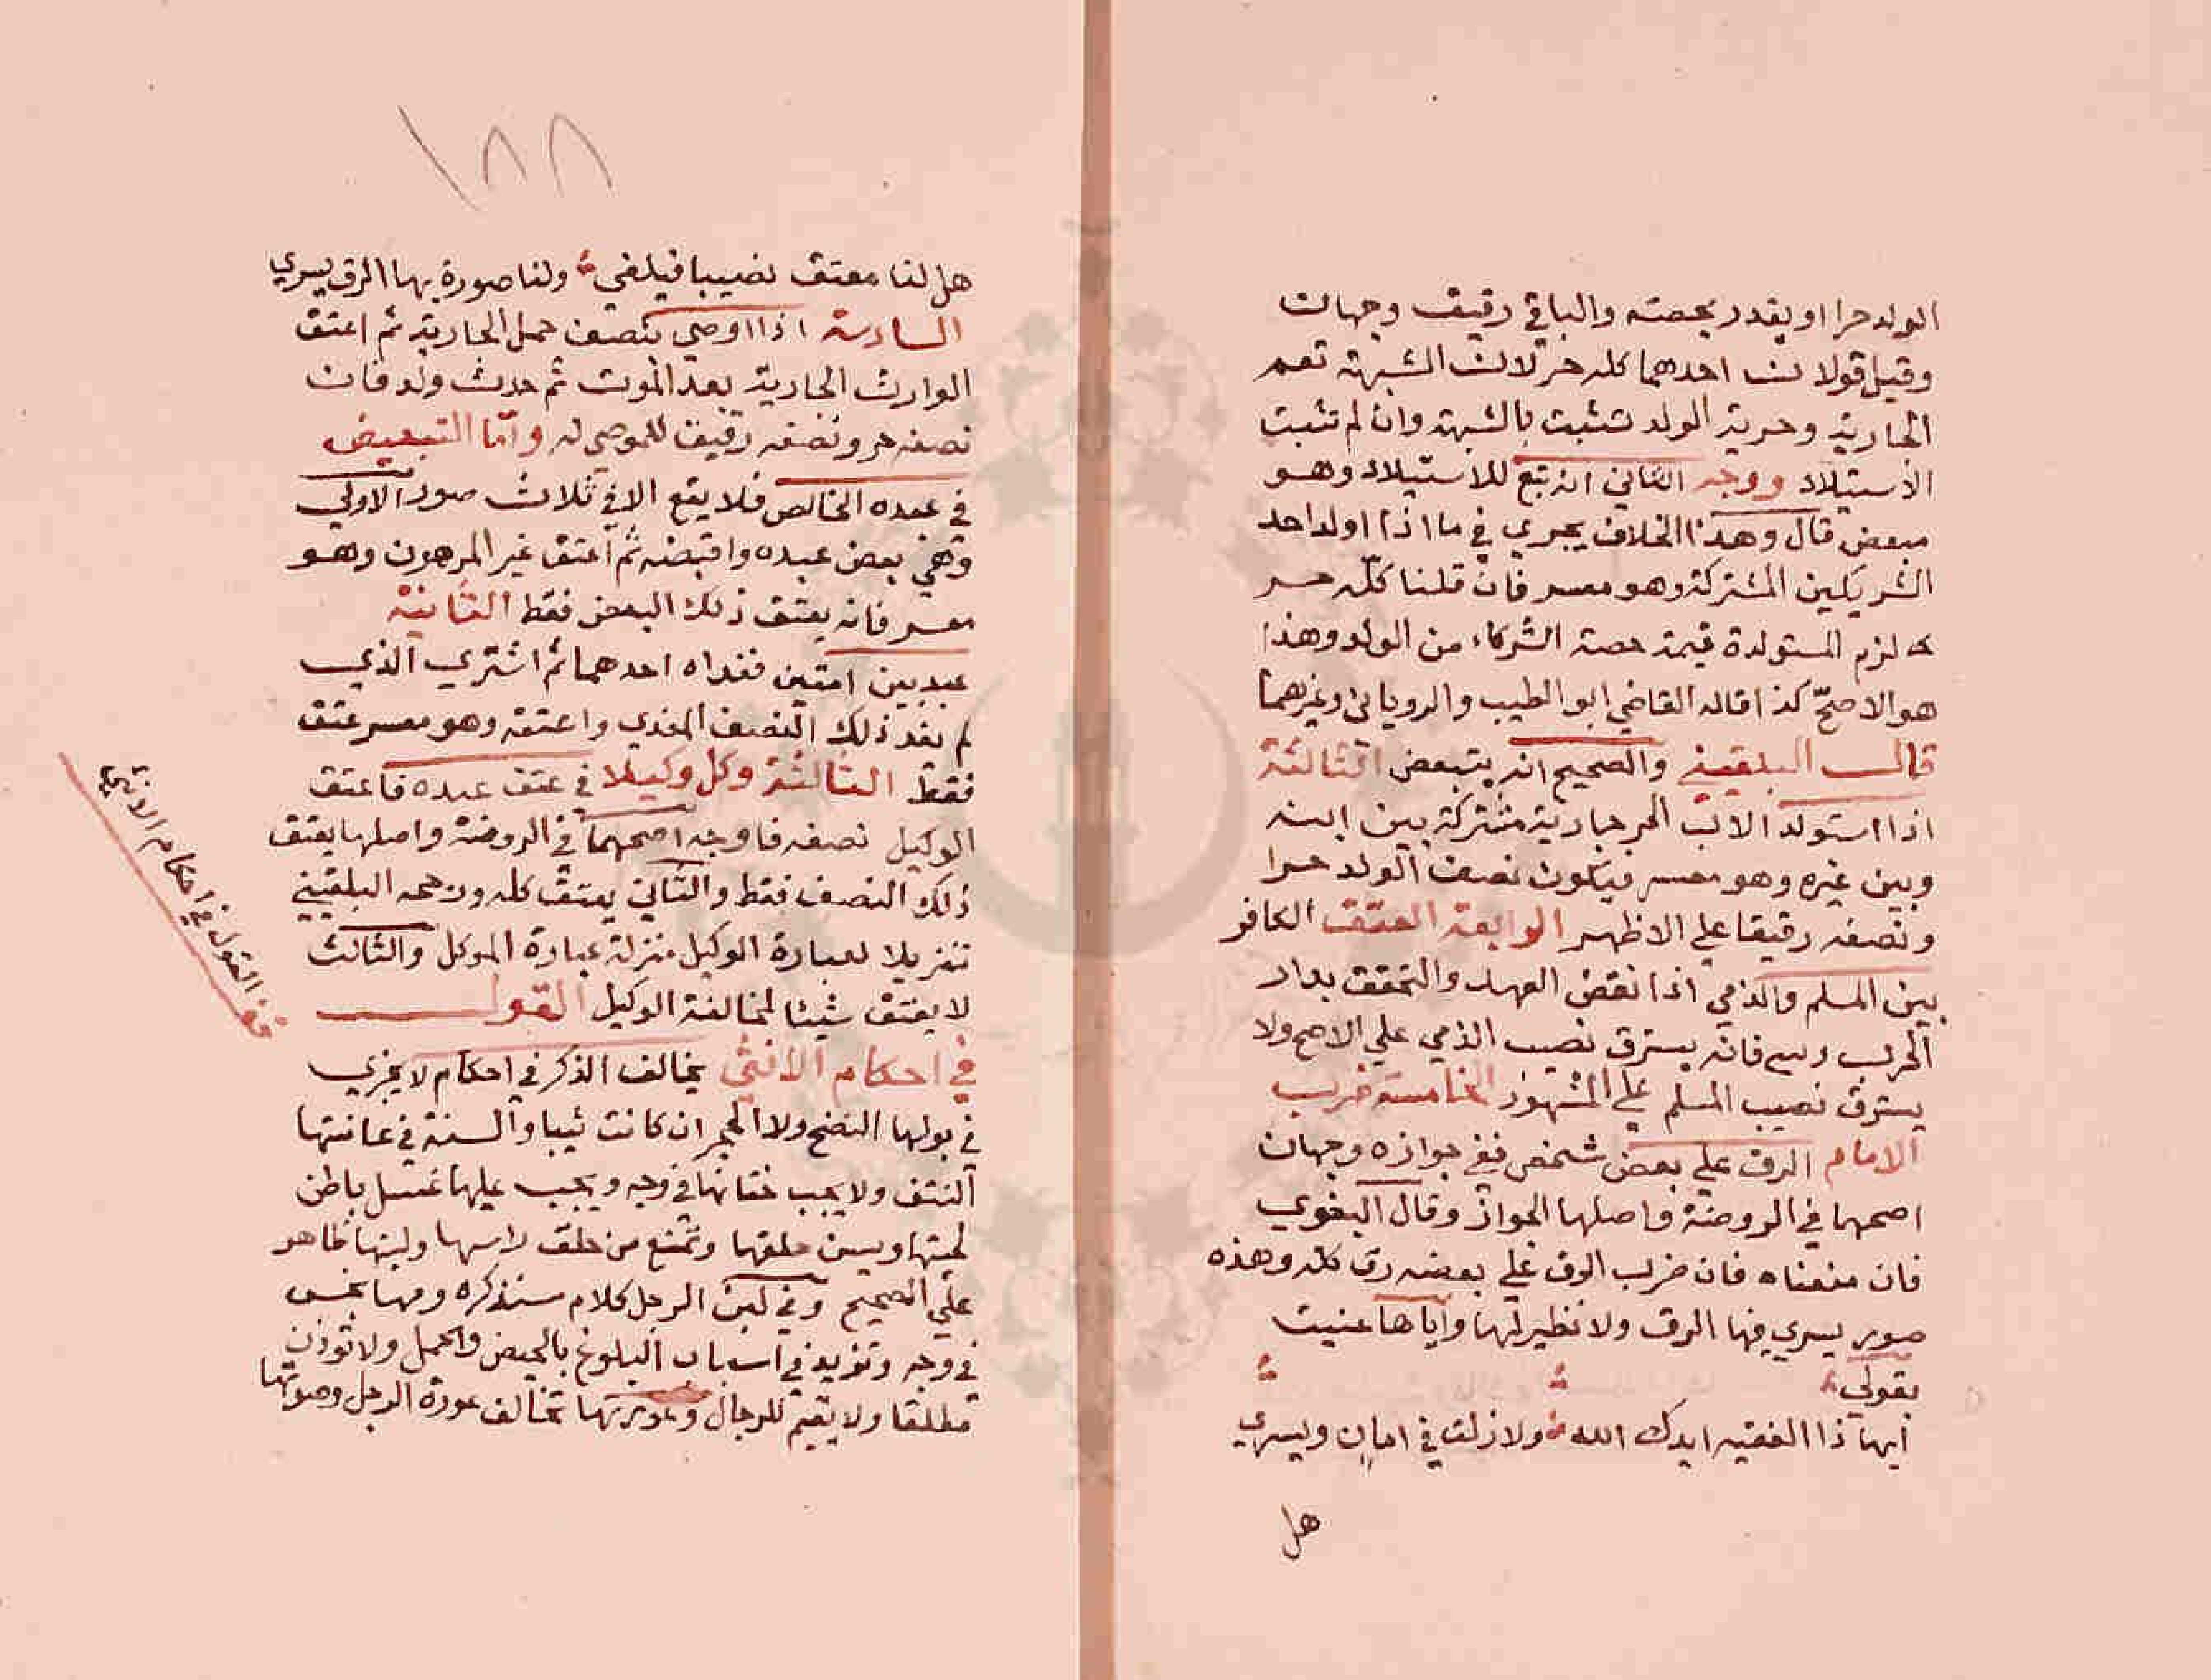 الولد حرا او بقدر بحصته والباقي رقيق وجهان
وقيل قولان احدهما كله حر لان الشبهة تعم
الجارية وحرية الولد تثبت بالشبهة وان لم تثبت
الاستيلاد ووجه الثاني انه تبع للاستيلاد وهو
مبعض قال وهذا الخلاف يجري في ما اذا اولد احد
الشريكين المشتركة وهو معسر فان قلنا كله حر
لزم المستولدة قيمة حصة الشركاء من الولد وهذا
هو الاصح كذا قاله القاضي ابو الطيب والروياني وغيرهما
قال البلقيني والصحيح انه يتبعض الثالثة
اذا استولد الاب الحر جارية مشتركة بين ابنه
وبين غيره وهو معسر فيكون نصف الولد حرا
ونصفه رقيقا علي الاظهر الرابعة العتق الكافر
بين المسلم والذمي اذا نقض العهد والتحقق بدار
الحرب وسبي فانه يسترق نصيب الذمي علي الاصح ولا
يسترق نصيب المسلم علي المشهور الخامسة ضرب
الامام الرق علي بعض شخص ففي جوازه وجهان
اصحهما في الروضة واصلها الجواز وقال البغوي
فان منعناه فان ضرب الرق علي بعضه رق كله وهذه
صور يسري فيها الرق ولا نظير لها واياها عنيت
بقولي
ايها ذا الفقيه ايدك الله ولا زلت في امان ويسري
هل
١٨٨
هل لنا معتق نصيبا فيلغي ولنا صورة بها الرق يسري
السادسة اذا اوصي بنصف حمل الجارية ثم اعتق
الوارث الجارية بعد الموت ثم حدث ولد فان
نصفه حر ونصفه رقيق للموصي له واما التبعيض
في عبده الخالص فلا يقع الا في ثلاث صور الاولي
وهي بعض عبده واقبضه ثم اعتق غير المرهون وهو
معسر فانه يعتق ذلك البعض فقط الثانية
عبد بين امتين ففداه احدهما ثم اشتري الذي
لم يفد ذلك النصف المفدي واعتقه وهو معسر عتق
فقط الثالثة وكل وكيلا في عتق عبده فاعتق
الوكيل نصفه فاوجه اصحهما في الروضة واصلها يعتق
ذلك النصف فقط والثاني يعتق كله ورجحه البلقيني
تنزيلا لعبارة الوكيل منزلة عبارة الموكل والثالث
لا يعتق شيئا لمخالفة الوكيل القول
في احكام الانثي يخالف الذكر في احكام لا يجزي
في بولها النضح ولا الحجر ان كانت ثيبا والسنة في عانتها
النتف ولا يجب ختانها في وجه ويجب عليها غسل باطن
لحيتها ويسن حلقها وتمنع من حلق راسها ولبنها طاهر
علي الصحيح وفي لبن الرجل كلام سنذكره ومها نجس
في وجه وتزيد في اسباب البلوغ بالحيض والحمل ولا توذن
مطلقا ولا يقيم للرجال وعورتها تخالف عورة الرجل وصوتها
قف القول في احكام الانثي